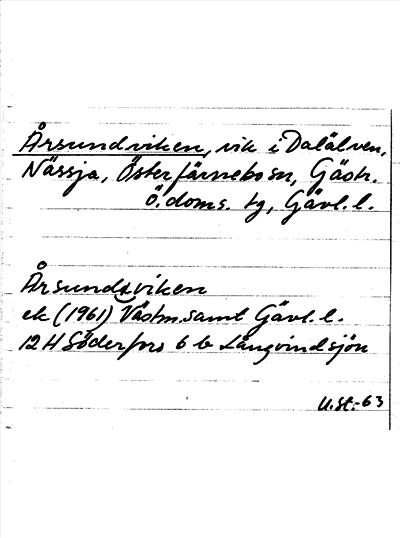 Årsundviken, vik i Dalälven,
Nässja, Österfärnebo sn, Gästr.
Ö. doms. tg, Gävl. l.
Årsundsviken
ek (1961) Västm. samt Gävl. l.
12 H Söderfors 6 b Långvindsjön
U.St.-63